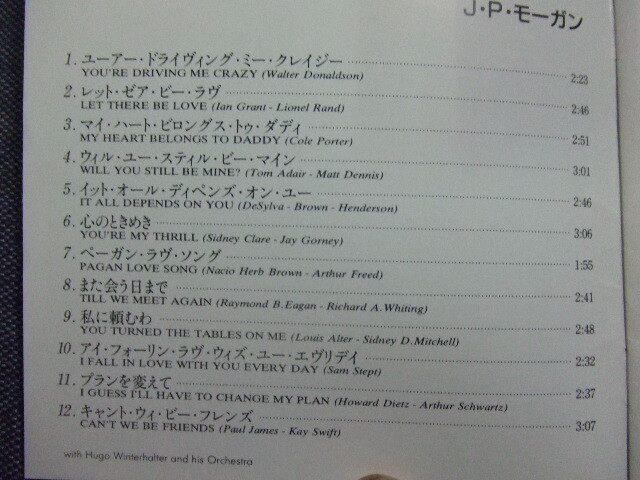 J・P・モーガン
1. ユーアー・ドライヴィング・ミー・クレイジー 2:23
YOU'RE DRIVING ME CRAZY (Walter Donaldson)
2. レット・ゼア・ビー・ラヴ 2:46
LET THERE BE LOVE (Ian Grant - Lionel Rand)
3. マイ・ハート・ビロングス・トゥ・ダディ 2:51
MY HEART BELONGS TO DADDY (Cole Porter)
4. ウィル・ユー・スティル・ビー・マイン 3:01
WILL YOU STILL BE MINE? (Tom Adair - Matt Dennis)
5. イット・オール・ディペンズ・オン・ユー 2:46
IT ALL DEPENDS ON YOU (DeSylva - Brown - Henderson)
6. 心のときめき 3:06
YOU'RE MY THRILL (Sidney Clare - Jay Gorney)
7. ペーガン・ラヴ・ソング 1:55
PAGAN LOVE SONG (Nacio Herb Brown - Arthur Freed)
8. また会う日まで 2:41
TILL WE MEET AGAIN (Raymond B.Eagan - Richard A.Whiting)
9. 私に頼むわ 2:48
YOU TURNED THE TABLES ON ME (Louis Alter - Sidney D.Mitchell)
10. アイ・フォーリン・ラヴ・ウィズ・ユー・エヴリデイ 2:32
I FALL IN LOVE WITH YOU EVERY DAY (Sam Stept)
11. プランを変えて 2:37
I GUESS I'LL HAVE TO CHANGE MY PLAN (Howard Dietz - Arthur Schwartz)
12. キャント・ウィ・ビー・フレンズ 3:07
CAN'T WE BE FRIENDS (Paul James - Kay Swift)
with Hugo Winterhalter and his Orchestra